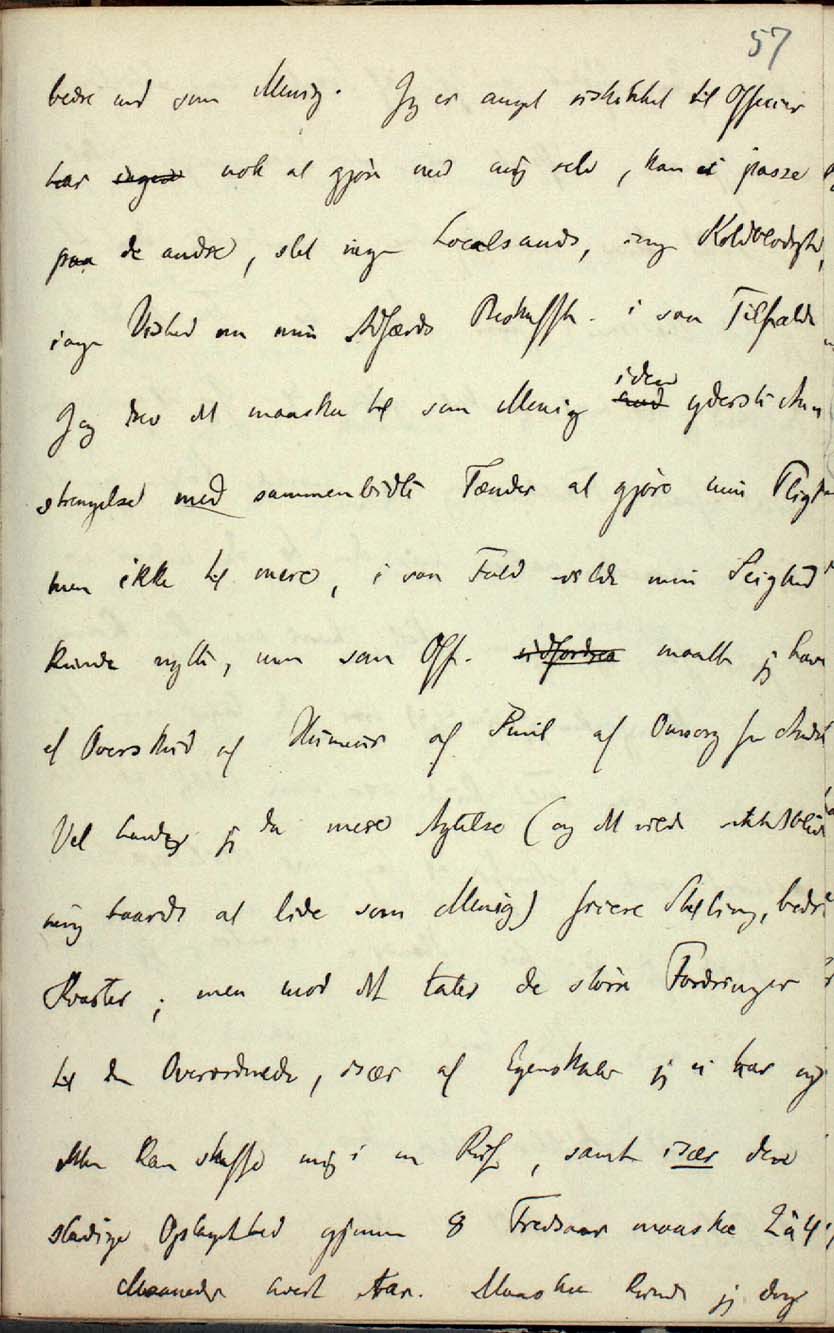 57
bedre end som Menig. Jeg er angst uskikket til Officier
har ingen nok at gjøre med mig selv, kan ei passe
paa de andre, slet ingen Localsands, ingen Koldblodighd,
ingen Vished om min Adfærds Beskaffh. i saa Tilfælde
Jeg drev det maaske til som Menig iden yderste An
strengelse med sammenbidte Tænder at gjøre min Pligt
men ikke til mere, i saa Fald vilde min Seighed
kunde nytte, men som Off. udfordres maatte jeg have
et Overskud af Humeur af Smil af Omsorg for Andre
Vel havde jeg da mere Agtelse (og det vilde
mig haardt at lide som Menig) friere Stilling, bedre
Kvarter; men mod det taler de større Fordringer
til den Overordnede, især af Egenskaber jeg ei har og
ikke kan skaffe mig i en Ruf, samt især den
stadige Opslugthed gjennem 8 Fredsaar maaske 2 à 4
Maaneder hvert Aar. Maaske kunde jeg dog